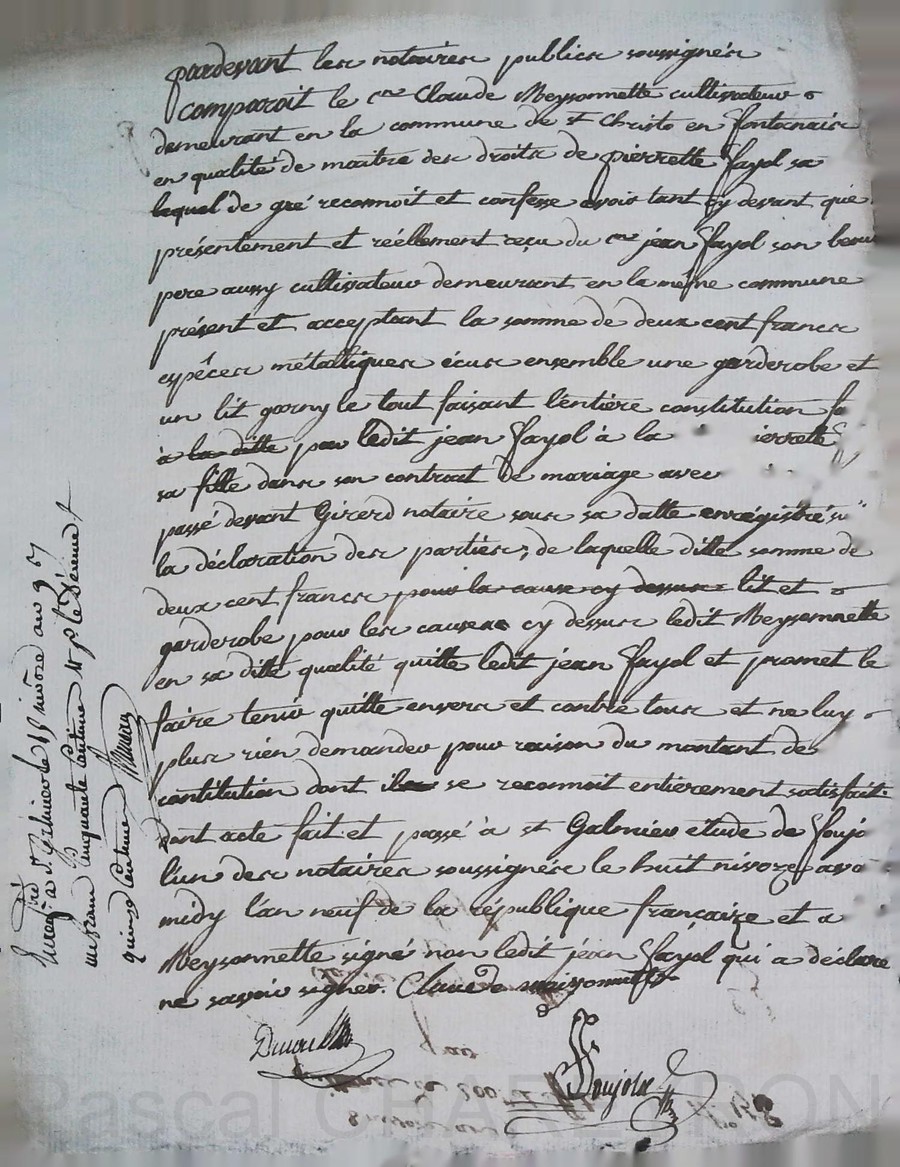 pardevant les notaires publics soussignés
comparoit le cen Claude Meysonnette cultivateur
demeurant en la commune de st Christo en fontanais
en qualité de maitre des droits de pierrette fayol sa
lequel de gré reconnoit et confesse avoir tant cy devant que
présentement et réellement reçu du cen jean fayol son beau
pere aussy cultivateur demeurant en la même commune
présent et acceptant la somme de deux cent francs
espêces métalliques écus ensemble une garderobe et
un lit garny le tout faisant l'entière constitution fa
à la ditte par ledit jean fayol à la ierrette
sa fille dans son contrat de mariage avec
passé devant Girerd notaire sous sa datte enrégistré
la déclaration des parties, de laquelle ditte somme de
deux cent francs pour la cause cy dessus lit et
garderobe pour les causes cy dessus ledit Meysonnette
en sa ditte qualité quitte ledit jean fayol et promet le
faire tenir quitte envers et contre tous et ne luy
plus rien demander pour raison du montant de
contitution dont il se reconnoit entierement satisfait
dont acte fait et passé à st Galmier etude de foujo
l'un des notaires soussignés le huit nivoze ava
midy l'an neuf de la république française et a
Meysonnette signé non ledit jean fayol qui a déclaré
ne savoir signer. Claude maisonnette
Foujols
Enregtré à st Galmier le 18 nivose an 9
un franc cinquante centimes
quinze centimes
Pascal CHA